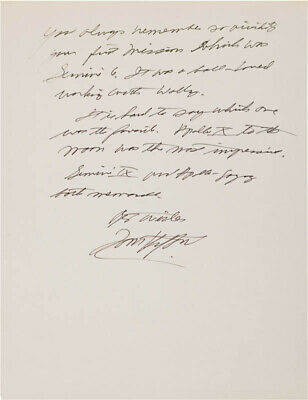 You always remember so vividly
your first mission which was
Gemini 6. It was a ball. Loved
working with Wally.
It is hard to say which one
was the favorite. Apollo X to the
moon was the most impressive.
Gemini IX and Apollo-Soyuz
both memorable
Best wishes
Tom Stafford